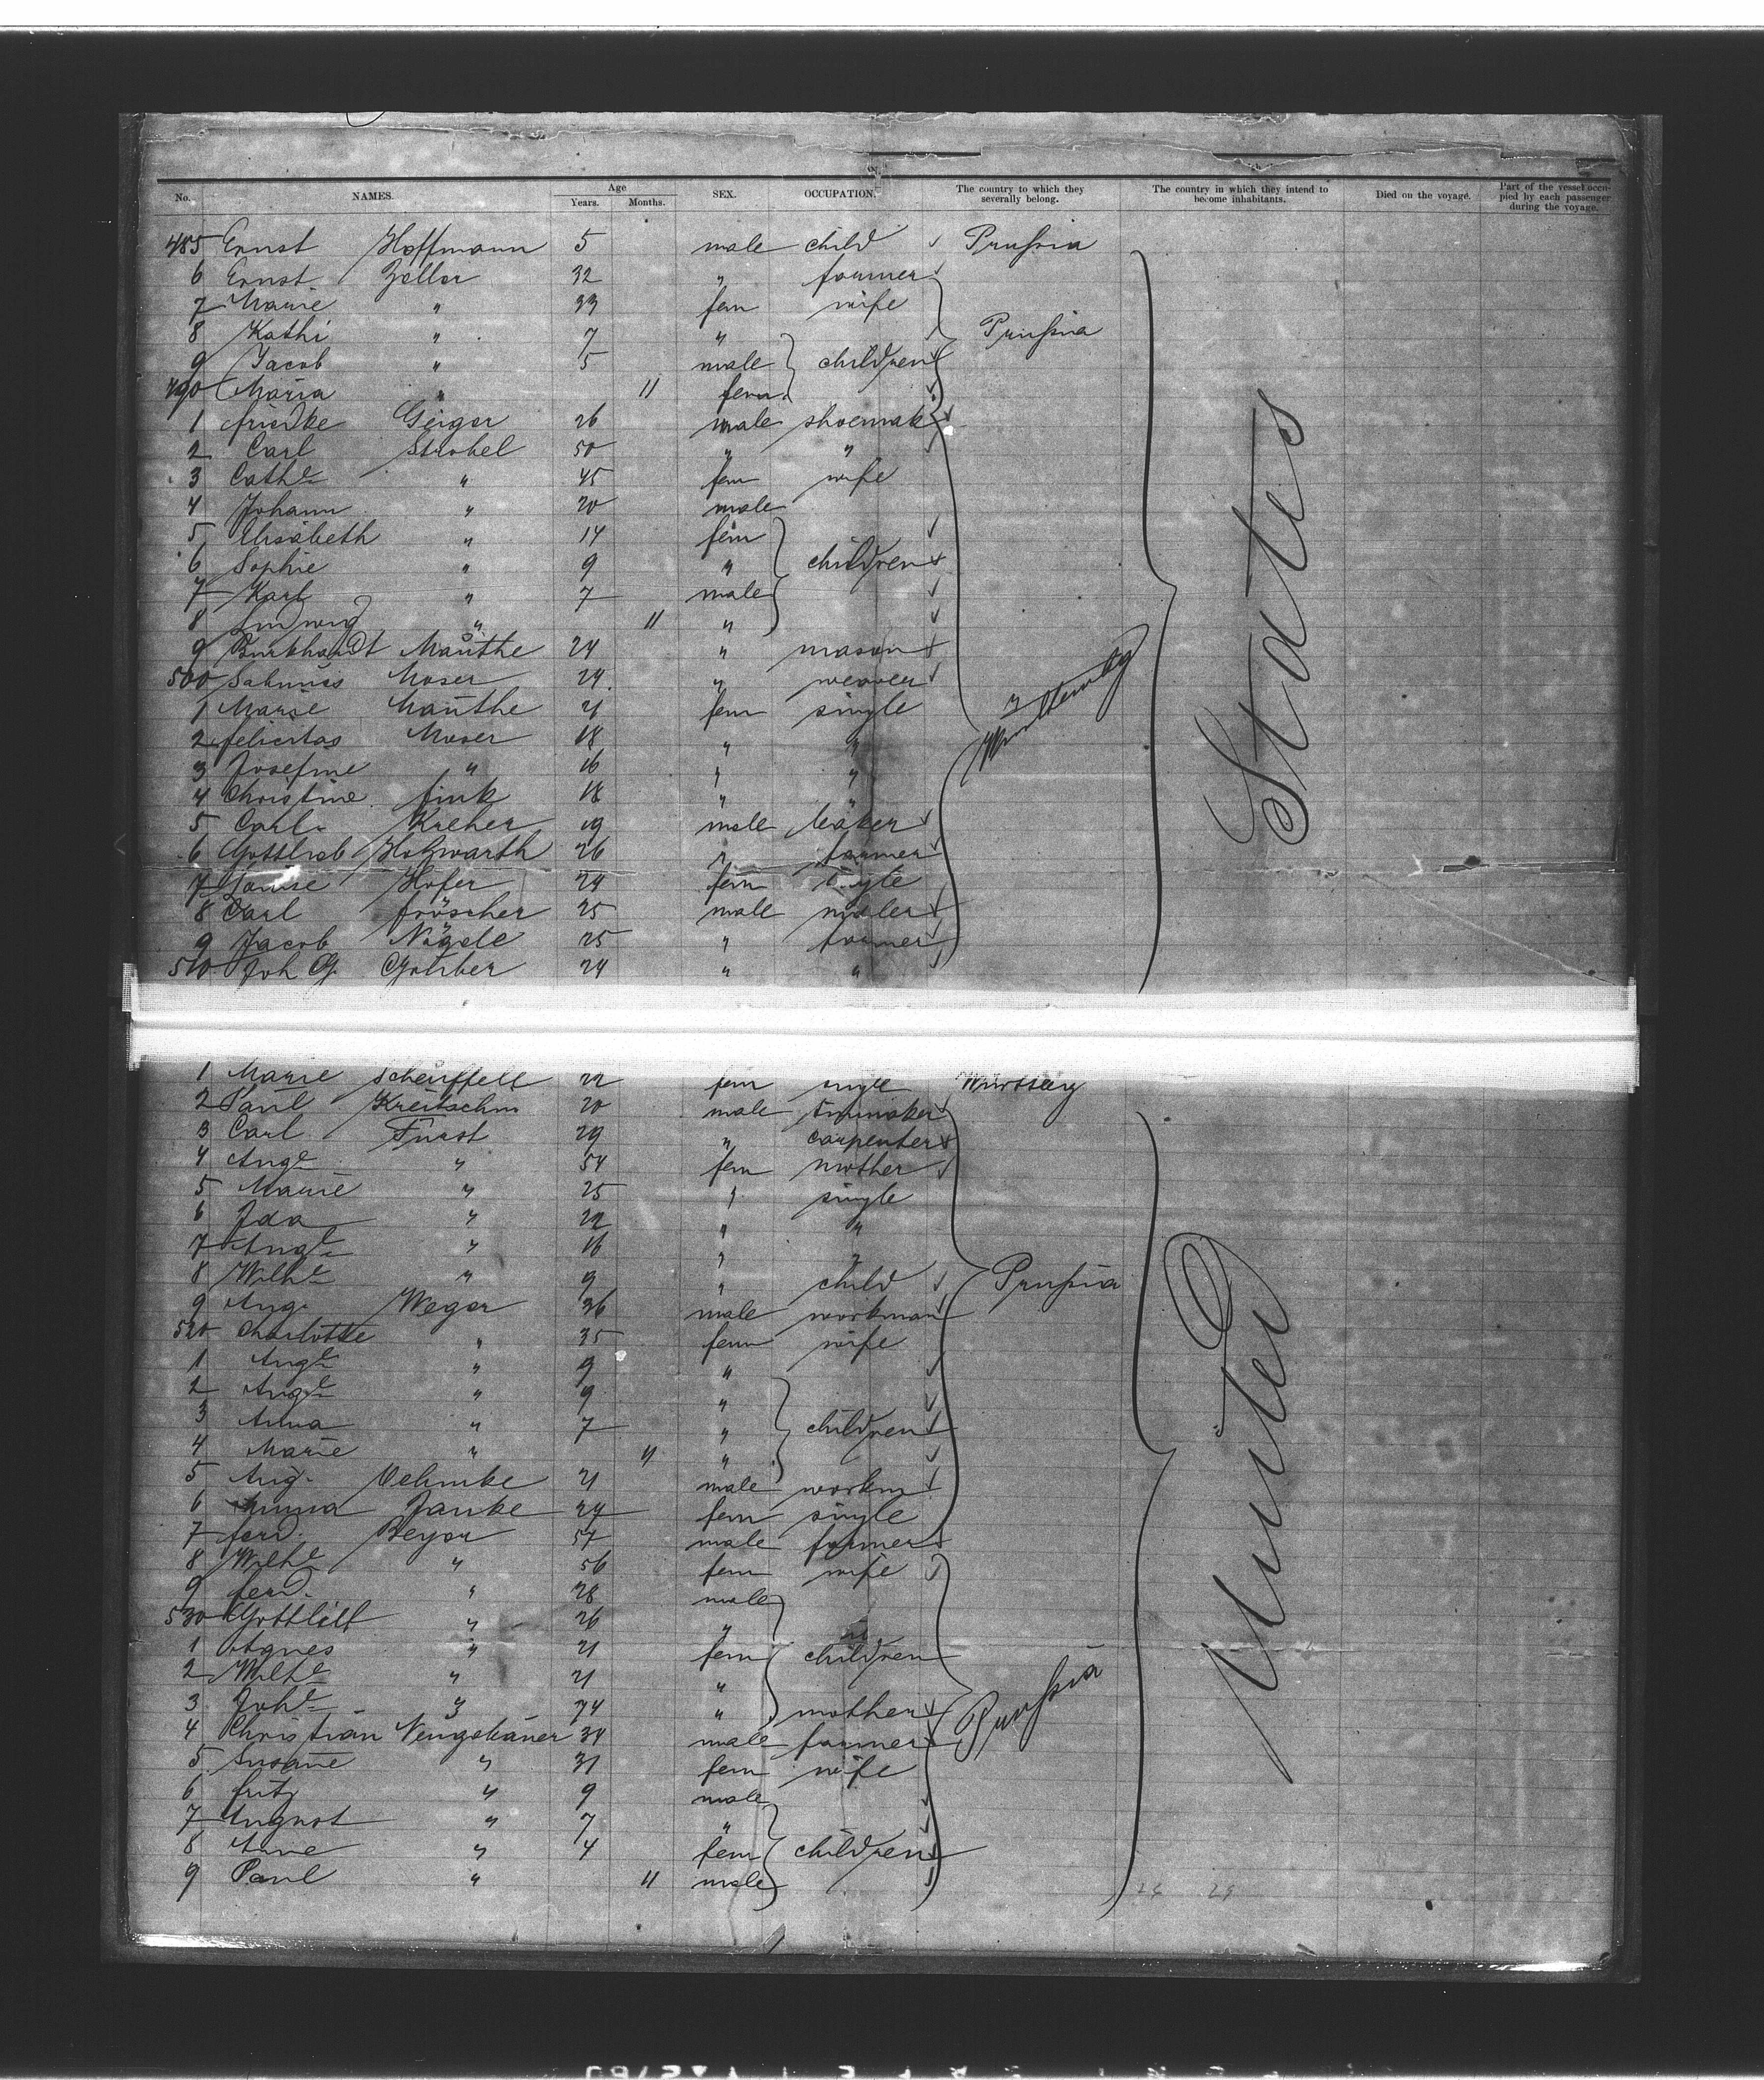 No. NAMES. Age Years. Months. SEX. OCCUPATION. The country to which they severally belong. The country in which they intend to become inhabitants. Died on the voyage. Part of the vessel occupied by each passenger during the voyage.
485 Ernst Hoffmann 5 male child Prußia
6 Ernst Zeller 32 " farmer
7 Marie " 33 fem wife
8 Kathi " 7 " Prußia
9 Jacob " 5 male children
490 Maria " 11 fem
1 friedke Geiger 26 male shoemak
2 Carl Strobel 50 " "
3 Cathe " 45 fem wife
4 Johann " 20 male
5 Elisabeth " 14 fem
6 Sophie " 9 " children
7 Karl " 7 male
8 Ludwig " 11 "
9 Burkhardt Mauthe 24 " mason
500 Moser 24 " weaver
1 Marie Mauthe 21 fem single
2 felicitas Moser 18 " "
3 Josefine " 16 " "
4 Christine fink 18 "
5 Carl Kreher 19 male bäker
6 Gottlieb Holzwarth 26 " farmer
7 Louise Hofer 24 fem single
8 Carl fröscher 25 male
9 Jacob Nägele 25 " farmer
510 Joh G. 24 " "
Württembg
States
1 Marie Scheuffele 22 fem single
2 Paul Kreitschm 20 male
3 Carl Furst 29 " carpenter
4 Auge " 54 fem mother
5 Marie " 25 " single
6 Ida " 22 " "
7 Auge " 16 " "
8 Wilhe " 9 " child Prußia
9 Aug. Weger 36 male workman
520 Charlotte " 35 fem wife
1 Auge " 9 "
2 Auge " 9 "
3 Anna " 7 " children
4 Marie " 11 "
5 Aug. 21 male workm
6 Janke 24 fem single
7 ferd. Beyer 57 male farmer
8 Wilhe " 56 fem wife
9 ferd. " 28 male
530 Gottlieb " 26 "
1 Agnes " 21 fem children
2 Wilhe " 21 "
3 Johe " 74 " mother Prußia
4 Christian Neugebauer 34 male farmer
5 Susane " 31 fem wife
6 fritz " 9 male
7 August " 7 "
8 Anne " 4 fem children
9 Paul " 11 male
United